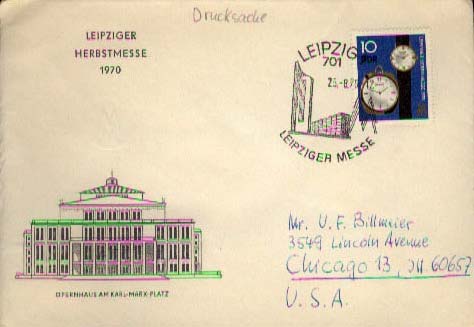 Drucksache
LEIPZIGER
HERBSTMESSE
1970
LEIPZIG
701
LEIPZIGER MESSE
10
DDR
OPERNHAUS AM KARL-MARX-PLATZ
Mr. U. F. Billmeier
3549 Lincoln Avenue
Chicago 13, Ill. 60657
U. S. A.